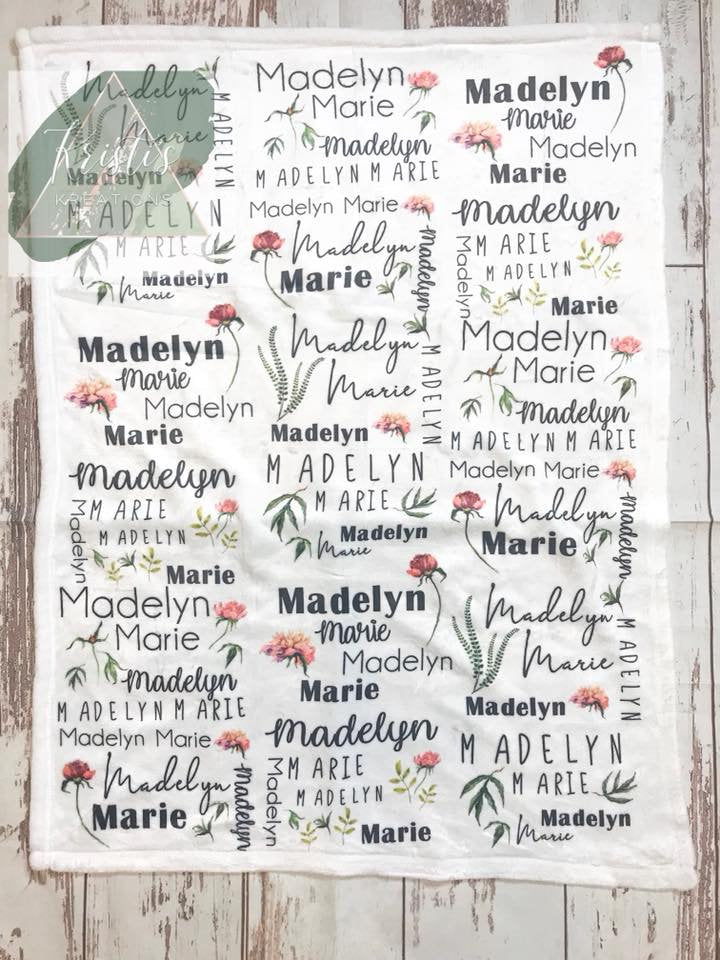 Kristi's
KREATIONS
Madelyn
Marie
M ADELYN
Madelyn
M ADELYN
M ARIE
Madelyn
Marie
Madelyn
Marie
Madelyn
Marie
Madelyn
M ARIE
M ADELYN
Madelyn
Marie
Madelyn
Marie
Madelyn
M ADELYN M ARIE
Madelyn Marie
Madelyn
Marie
Madelyn
Madelyn
Marie
Madelyn
M ADELYN M ARIE
Madelyn Marie
Madelyn
Marie
Madelyn
Madelyn
Marie
M ADELYN
Madelyn
M ADELYN
M ARIE
Madelyn
Marie
Madelyn
Marie
Madelyn
Marie
Madelyn
M ARIE
M ADELYN
Madelyn
Marie
Madelyn
Marie
Madelyn
Marie
Madelyn
M ARIE
M ADELYN
Madelyn
Marie
Madelyn
Marie
Madelyn
M ADELYN M ARIE
Madelyn Marie
Madelyn
Marie
Madelyn
Madelyn
Marie
M ADELYN
Madelyn
M ADELYN
M ARIE
Madelyn
Marie